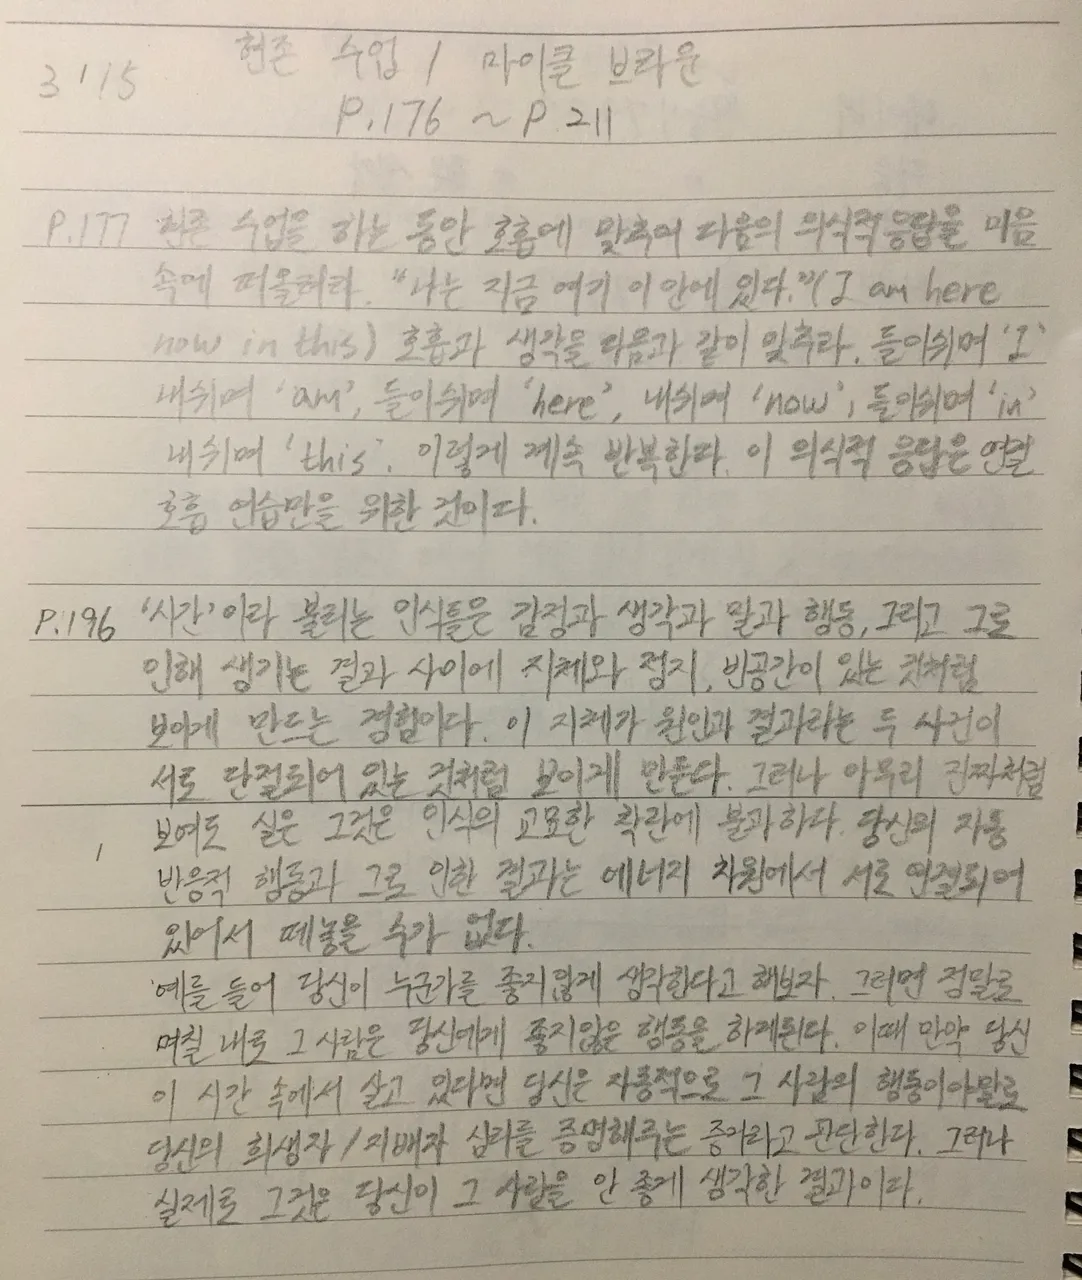 3/15 현존 수업 / 마이클 브라운
P.176 ~ P.211
P.177 현존 수업을 하는 동안 호흡에 맞추어 다음의 의식적응답을 마음
속에 떠올려라. "나는 지금 여기 이 안에 있다."(I am here
now in this) 호흡과 생각을 다음과 같이 맞추라. 들이쉬며 'I'
내쉬며 'am', 들이쉬며 'here', 내쉬며 'now', 들이쉬며 'in'
내쉬며 'this'. 이렇게 계속 반복한다. 이 의식적 응답은 연결
호흡 연습만을 위한 것이다.
P.196 '시간'이라 불리는 인식틀은 감정과 생각과 말과 행동, 그리고 그로
인해 생기는 결과 사이에 지체와 정지, 빈공간이 있는 것처럼
보이게 만드는 경험이다. 이 지체가 원인과 결과라는 두 사건이
서로 단절되어 있는 것처럼 보이게 만든다. 그러나 아무리 진짜처럼
보여도 실은 그것은 인식의 교묘한 착란에 불과하다. 당신의 자동
반응적 행동과 그로 인한 결과는 에너지 차원에서 서로 연결되어
있어서 떼놓을 수가 없다.
예를 들어 당신이 누군가를 좋지않게 생각한다고 해보자. 그러면 정말로
며칠 내로 그 사람은 당신에게 좋지않은 행동을 하게된다. 이때 만약 당신
이 시간 속에서 살고 있다면 당신은 자동적으로 그 사람의 행동이야말로
당신의 희생자/지배자 심리를 증명해주는 증거라고 판단한다. 그러나
실제로 그것은 당신이 그 사람을 안 좋게 생각한 결과이다.